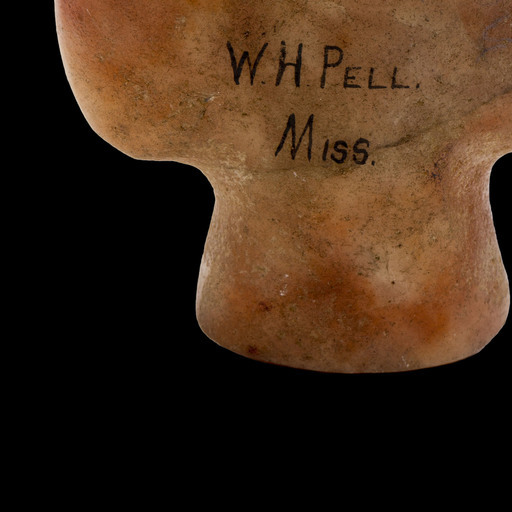 W.H. PELL.
MISS.